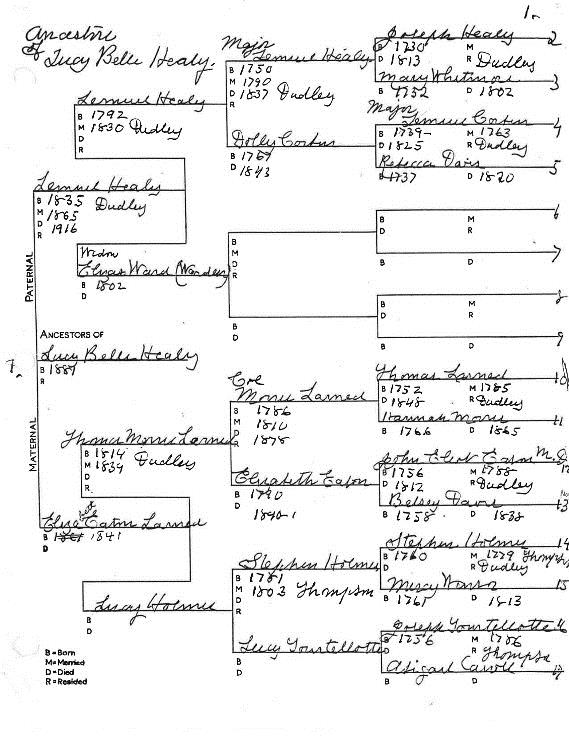 1.
Ancestors
of Lucy Belle Healy.
Joseph Healy 2
B 1730 M
D 1813 R Dudley
Mary Whitmore 3
B 1752 D 1802
Major
Lemuel Healy
B 1750
M 1790
D 1837 Dudley
R
Major
Lemuel Corbin 4
B 1739 M 1763
D 1825 R Dudley
Rebecca Davis 5
B 1737 D 1820
Dolly Corbin
B 1767
D 1843
Lemuel Healy
B 1792
M 1830 Dudley
D
R
Lemuel Healy
B 1835 Dudley
M 1865
D
R 1916
6
B M
D R
7
B D
Widow
Ward (Warden)
B 1802
D
B
M
D
R
8
B M
D R
9
B D
B
D
PATERNAL
ANCESTORS OF
7.
Lucy Belle Healy
B
R
MATERNAL
Thomas Larned 10
B 1752 M 1785
D 1848 R Dudley
Hannah Morris 11
B 1766 D 1865
Col
Morris Larned
B 1786
M 1810
D 1878
R
John Eliot Eaton M.D
B 1756 M 1788
D 1812 R Dudley
Betsey Davis 13
B 1758 D 1838
Elizabeth Eaton
B 1790
D
Thomas Morris Larned
B 1814
M 1839 Dudley
D
R
Eaton Larned
B 1841
D
Stephen Holmes 14
B 1760 M 1779 Thompson
D R Dudley
Mercy 15
B 1761 D 1813
Stephen Holmes
B 1781
M 1803 Thompson
D
R
Joseph Tourtellotte
B 1756 M 1786
D R Thompson
Abigail Carroll 17
B D
Lucy Tourtellotte
B
D
Lucy Holmes
B
D
B = Born
M = Married
D = Died
R = Resided